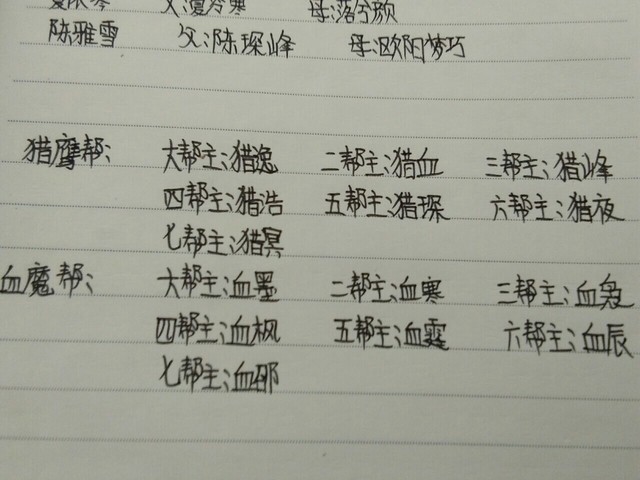 父:夏冷寒 母:落兮颜
陈雅雪 父:陈琛峰 母:欧阳梦巧
猎鹰帮: 大帮主:猎逸 二帮主:猎血 三帮主:猎峰
四帮主:猎浩 五帮主:猎琛 六帮主:猎夜
七帮主:猎冥
血魔帮: 大帮主:血墨 二帮主:血寒 三帮主:血枭
四帮主:血枫 五帮主:血霆 六帮主:血辰
七帮主:血邪